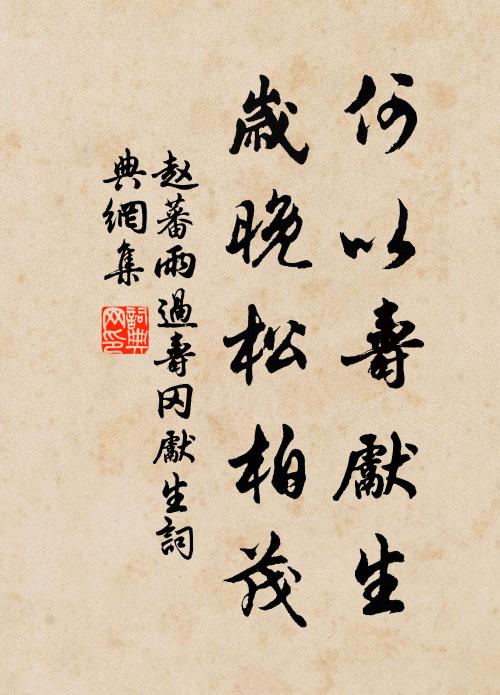 何以壽獻生
歲晚松柏茂
赵蕃雨過壽冈獻生詞
典網集
詞典网印